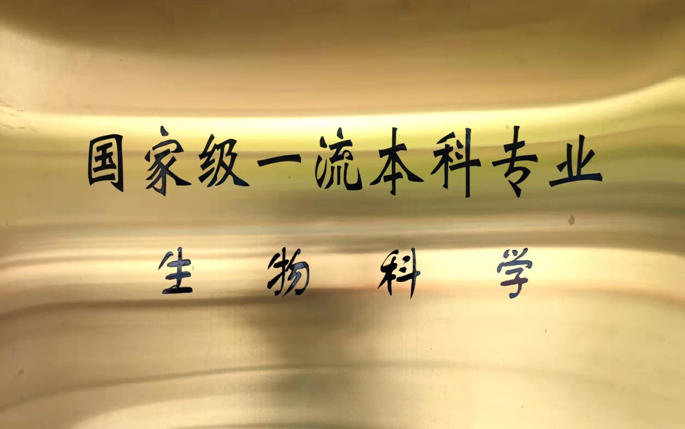 国家级一流本科专业
生物科学